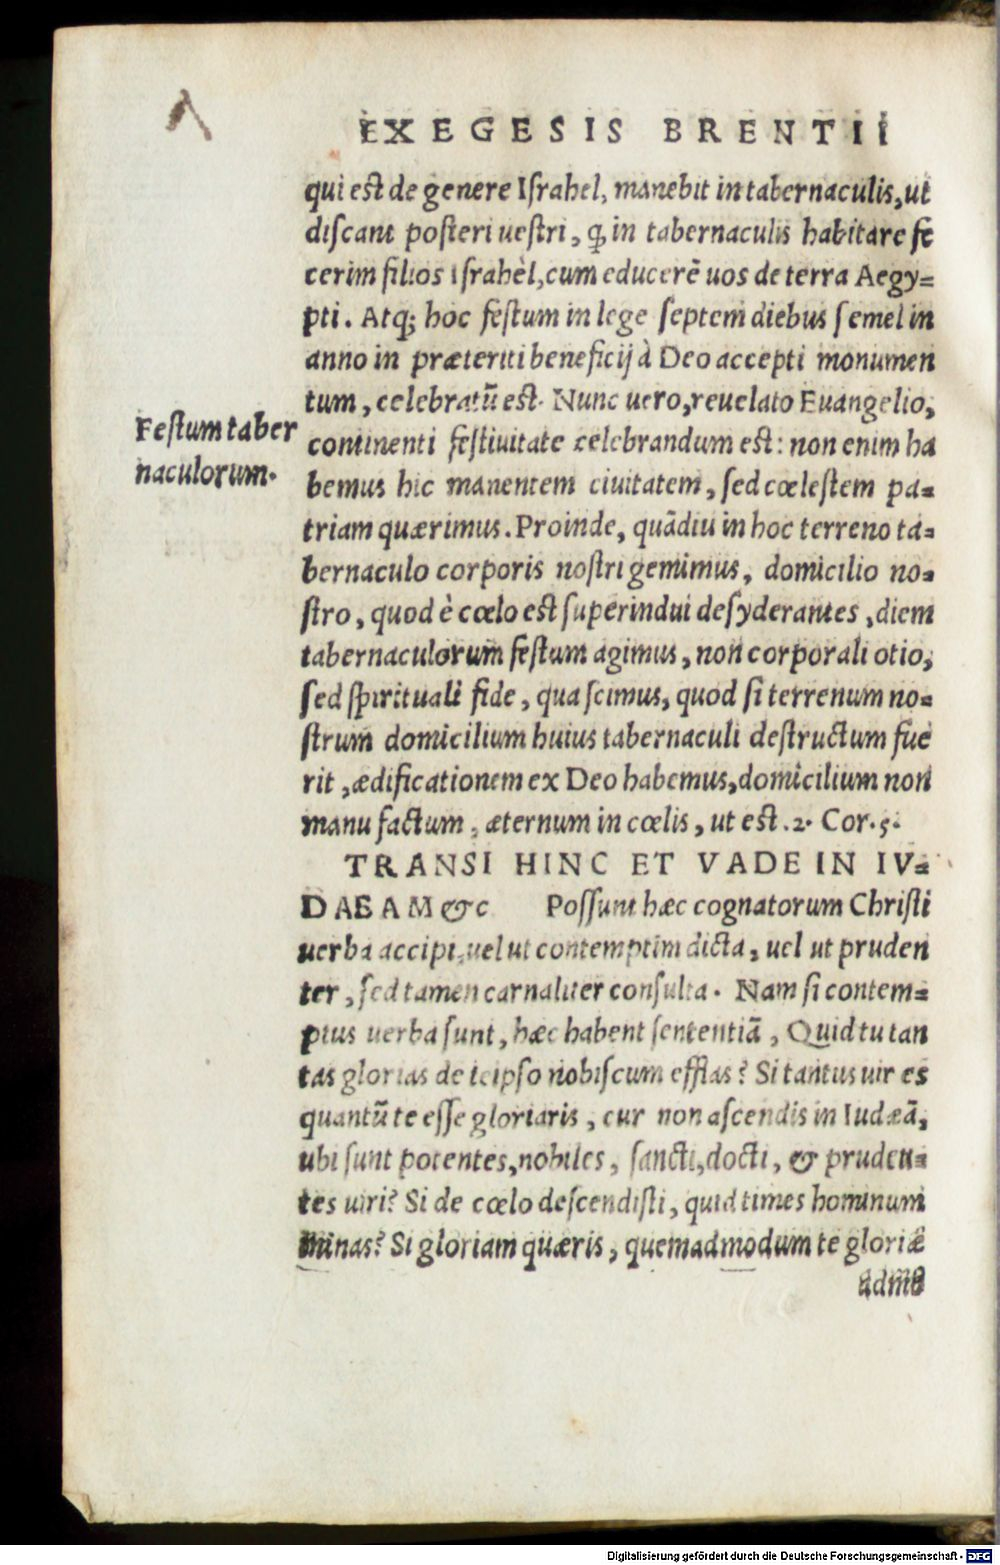 EXEGESIS BRENTII
qui est de genere Israhel, manebit in tabernaculis, ut
discant posteri uestri, ꝙ in tabernaculis habitare fe
cerim filios Israhèl, cum educerē uos de terra Aegy=
pti. Atq; hoc festum in lege septem diebus semel in
anno in præteriti beneficij à Deo accepti monumen
tum, celebratũ est. Nunc uero, reuelato Euangelio,
Festum taber
naculorum.
continenti festiuitate celebrandum est: non enim ha
bemus hic manentem ciuitatem, sed cœlestem pa=
triam quærimus. Proinde, quãdiu in hoc terreno ta=
bernaculo corporis nostri gemimus, domicilio no=
stro, quod è cœlo est superindui desyderantes, diem
tabernaculorum festum agimus, non corporali otio,
sed spirituali fide, qua scimus, quod si terrenum no=
strum domicilium huius tabernaculi destructum fue
rit, ædificationem ex Deo habemus, domicilium non
manu factum, æternum in cœlis, ut est .2. Cor. 5.
TRANSI HINC ET VADE IN IV=
DAEAM &c Possunt hæc cognatorum Christi
uerba accipi, uel ut contemptim dicta, uel ut pruden
ter, sed tamen carnaliter consulta. Nam si contem=
ptus uerba sunt, hæc habent sententiã, Quid tu tan
tas glorias de teipso nobiscum efflas? Si tantus uir es
quantũ te esse gloriaris, cur non ascendis in Iudæã,
ubi sunt potentes, nobiles, sancti, docti, & pruden=
tes uiri? Si de cœlo descendisti, quid times hominum
minas? Si gloriam quæris, quemadmodum te gloriæ
admo
Digitalisierung gefördert durch die Deutsche Forschungsgemeinschaft - DFG